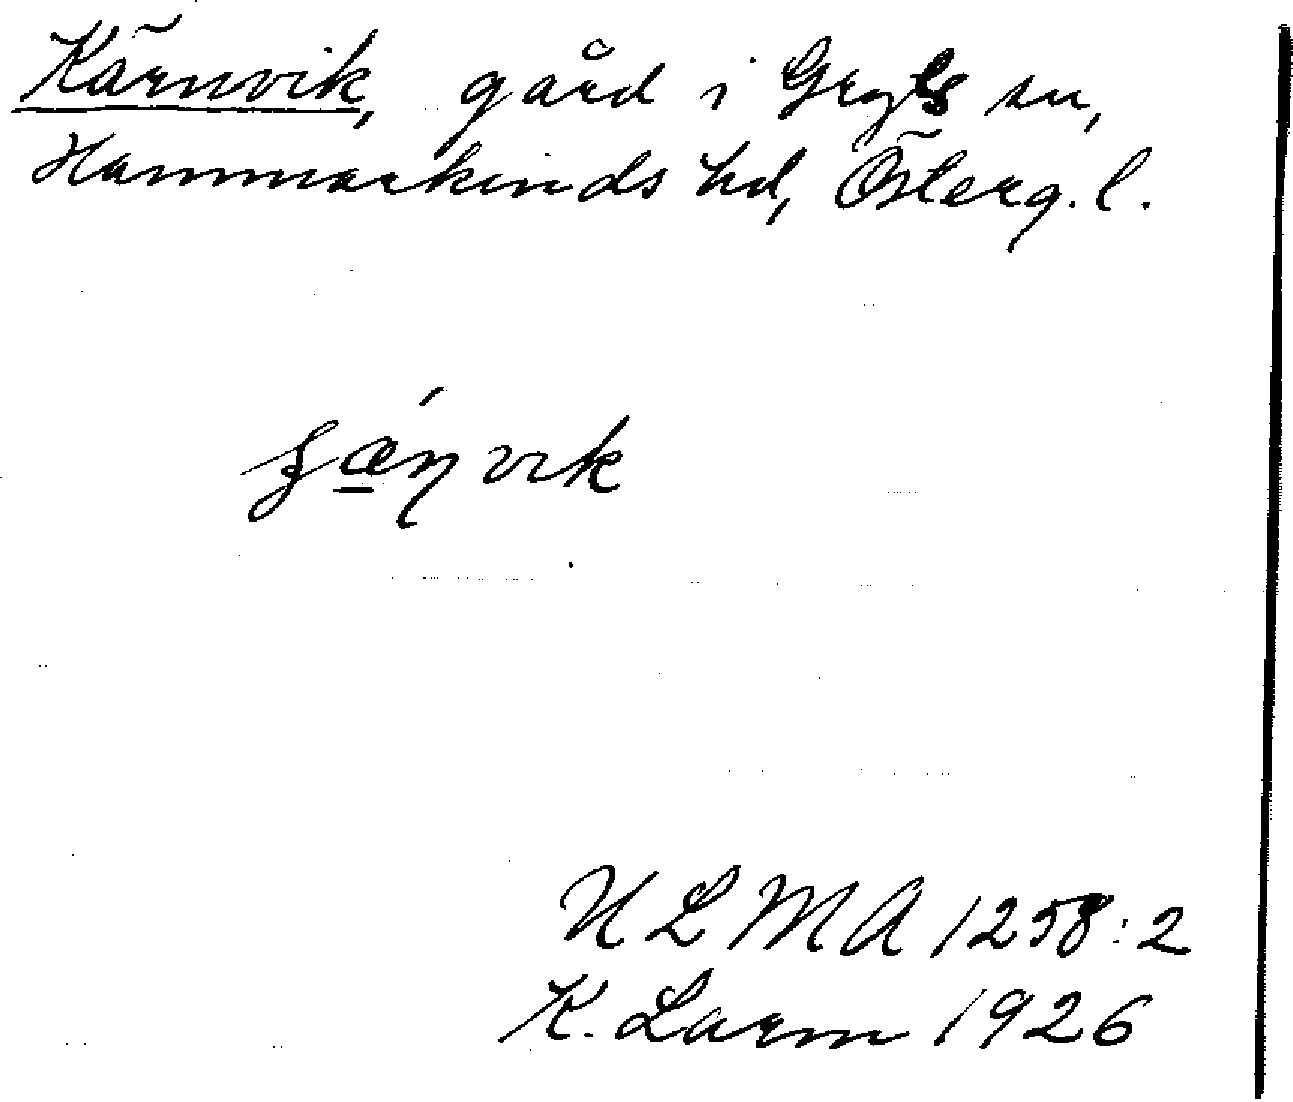 Kärnvik, gård i Gryts sn,
Hammarkinds hd, Österg. l.
ʂǽ̲ɳvik
ULMA 1258:2
K. Larm 1926